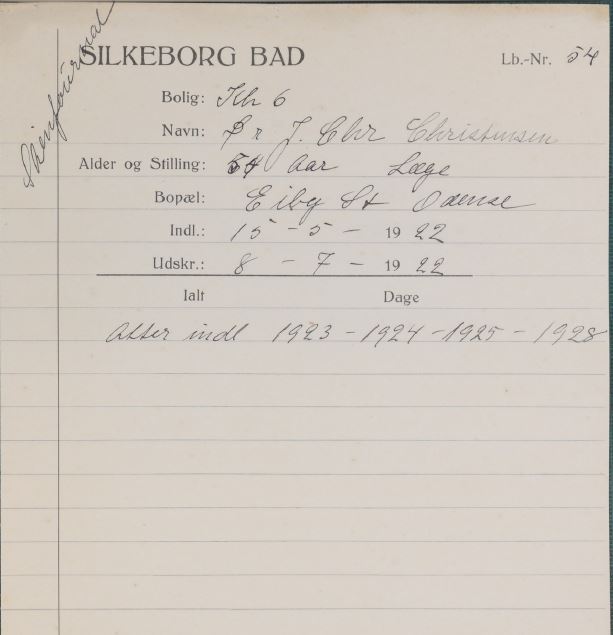 Skinfournal
SILKEBORG BAD
Lb.-Nr. 54
Bolig: Kh 6
Navn: Hr J. Chr Christensen
Alder og Stilling: 54 Aar Læge
Bopæl: Eiby St Odense
Indl.: 15 - 5 - 1922
Udskr.: 8 - 7 - 1922
Ialt Dage
Atter indl 1923 - 1924 - 1925 - 1928